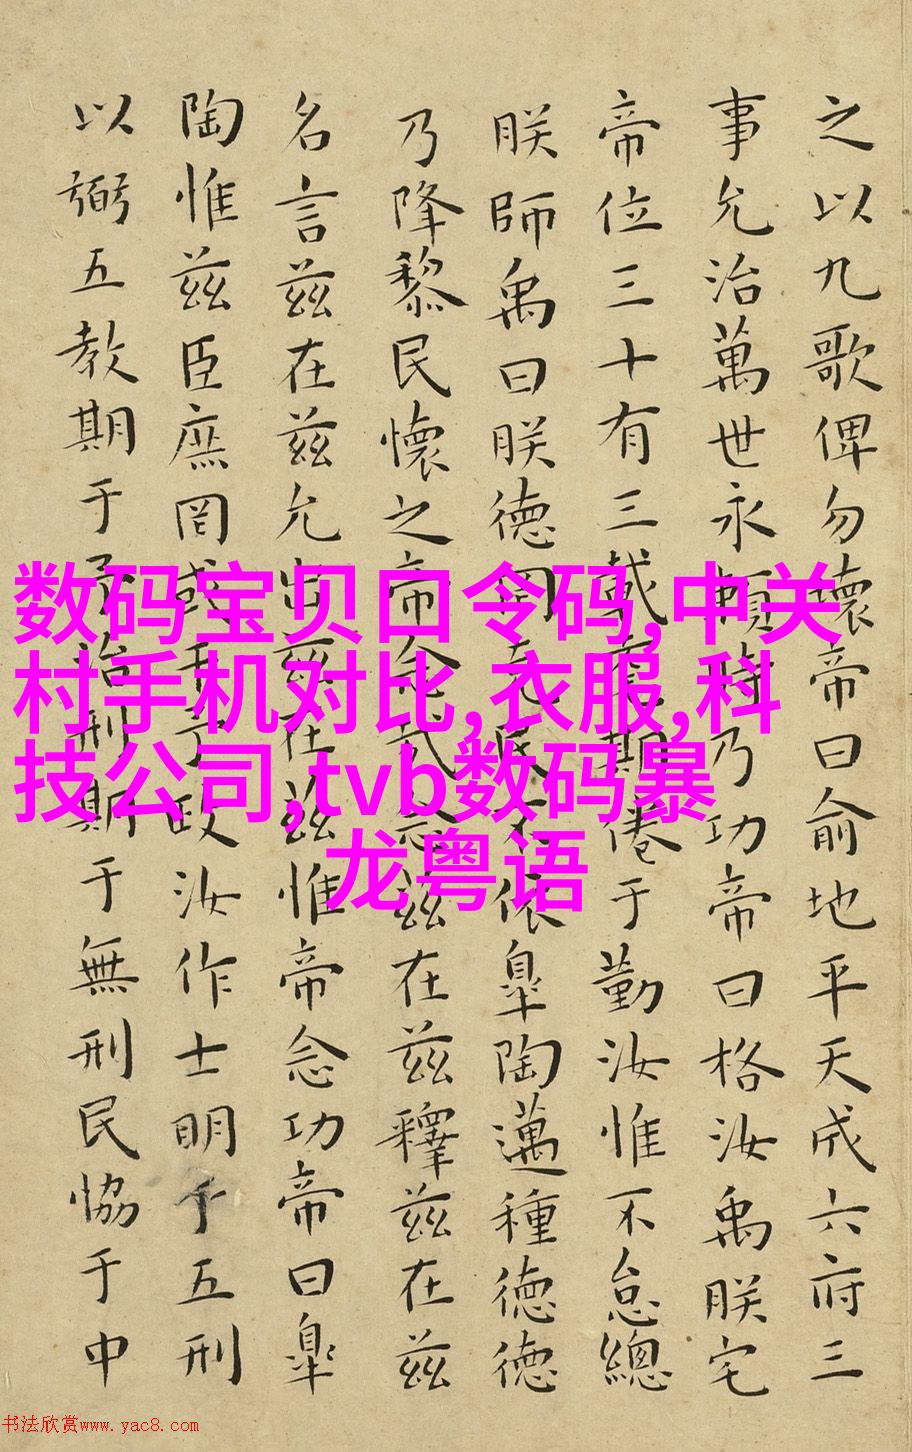 之以九歌俾勿壞帝曰俞地平天成六府三
事允治萬世永賴時乃功帝曰格汝禹朕宅
帝位三十有三載耄期倦于勤汝惟不怠總
朕師禹曰朕德罔克民不依皐陶邁種德德
乃降黎民懷之帝念哉念茲在茲釋茲在茲
名言茲在茲允出茲在茲惟帝念功帝曰皐
陶惟茲臣庶罔或干予政汝作士明于五刑
以弼五教期于予治刑期于無刑民恊于中
数码宝贝口令码,中关
村手机对比,衣服,科
技公司,tvb数码暴
龙粤语
书法欣赏www.yac8.com